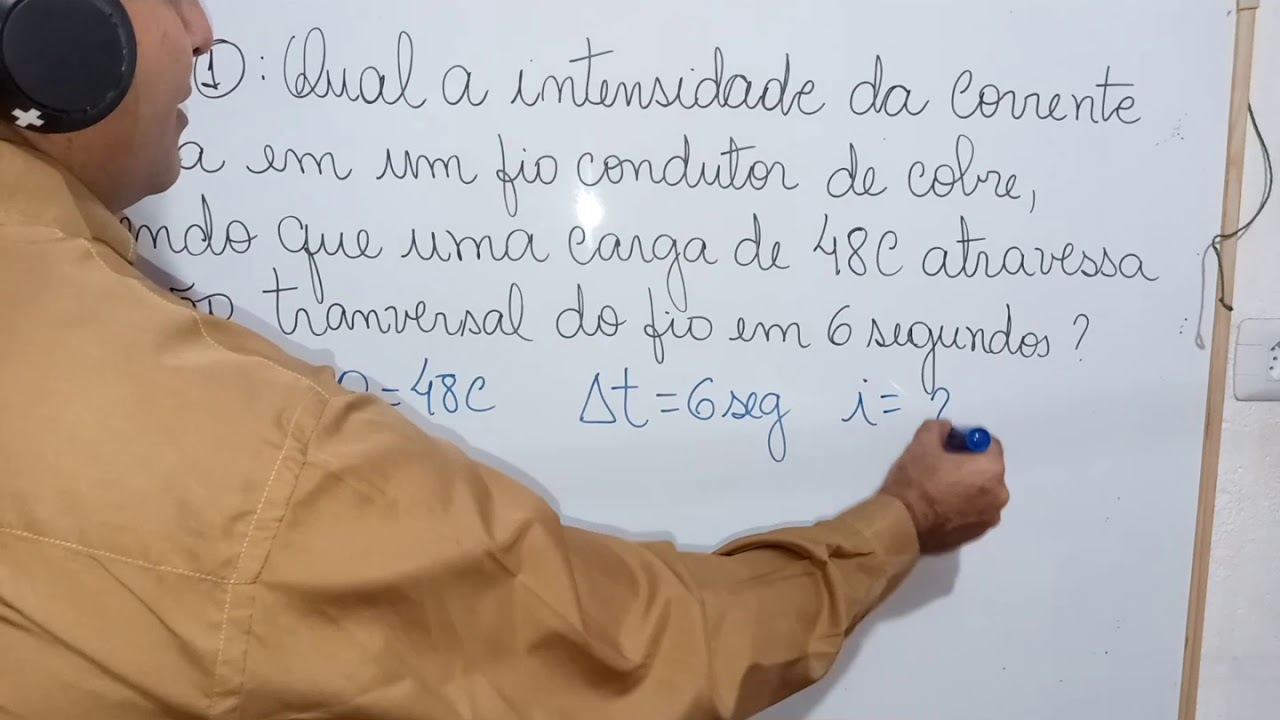 ①: Qual a intensidade da corrente
em um fio condutor de cobre,
que uma carga de 48C atravessa
tranversal do fio em 6 segundos?
Q=48C Δt=6seg i=?